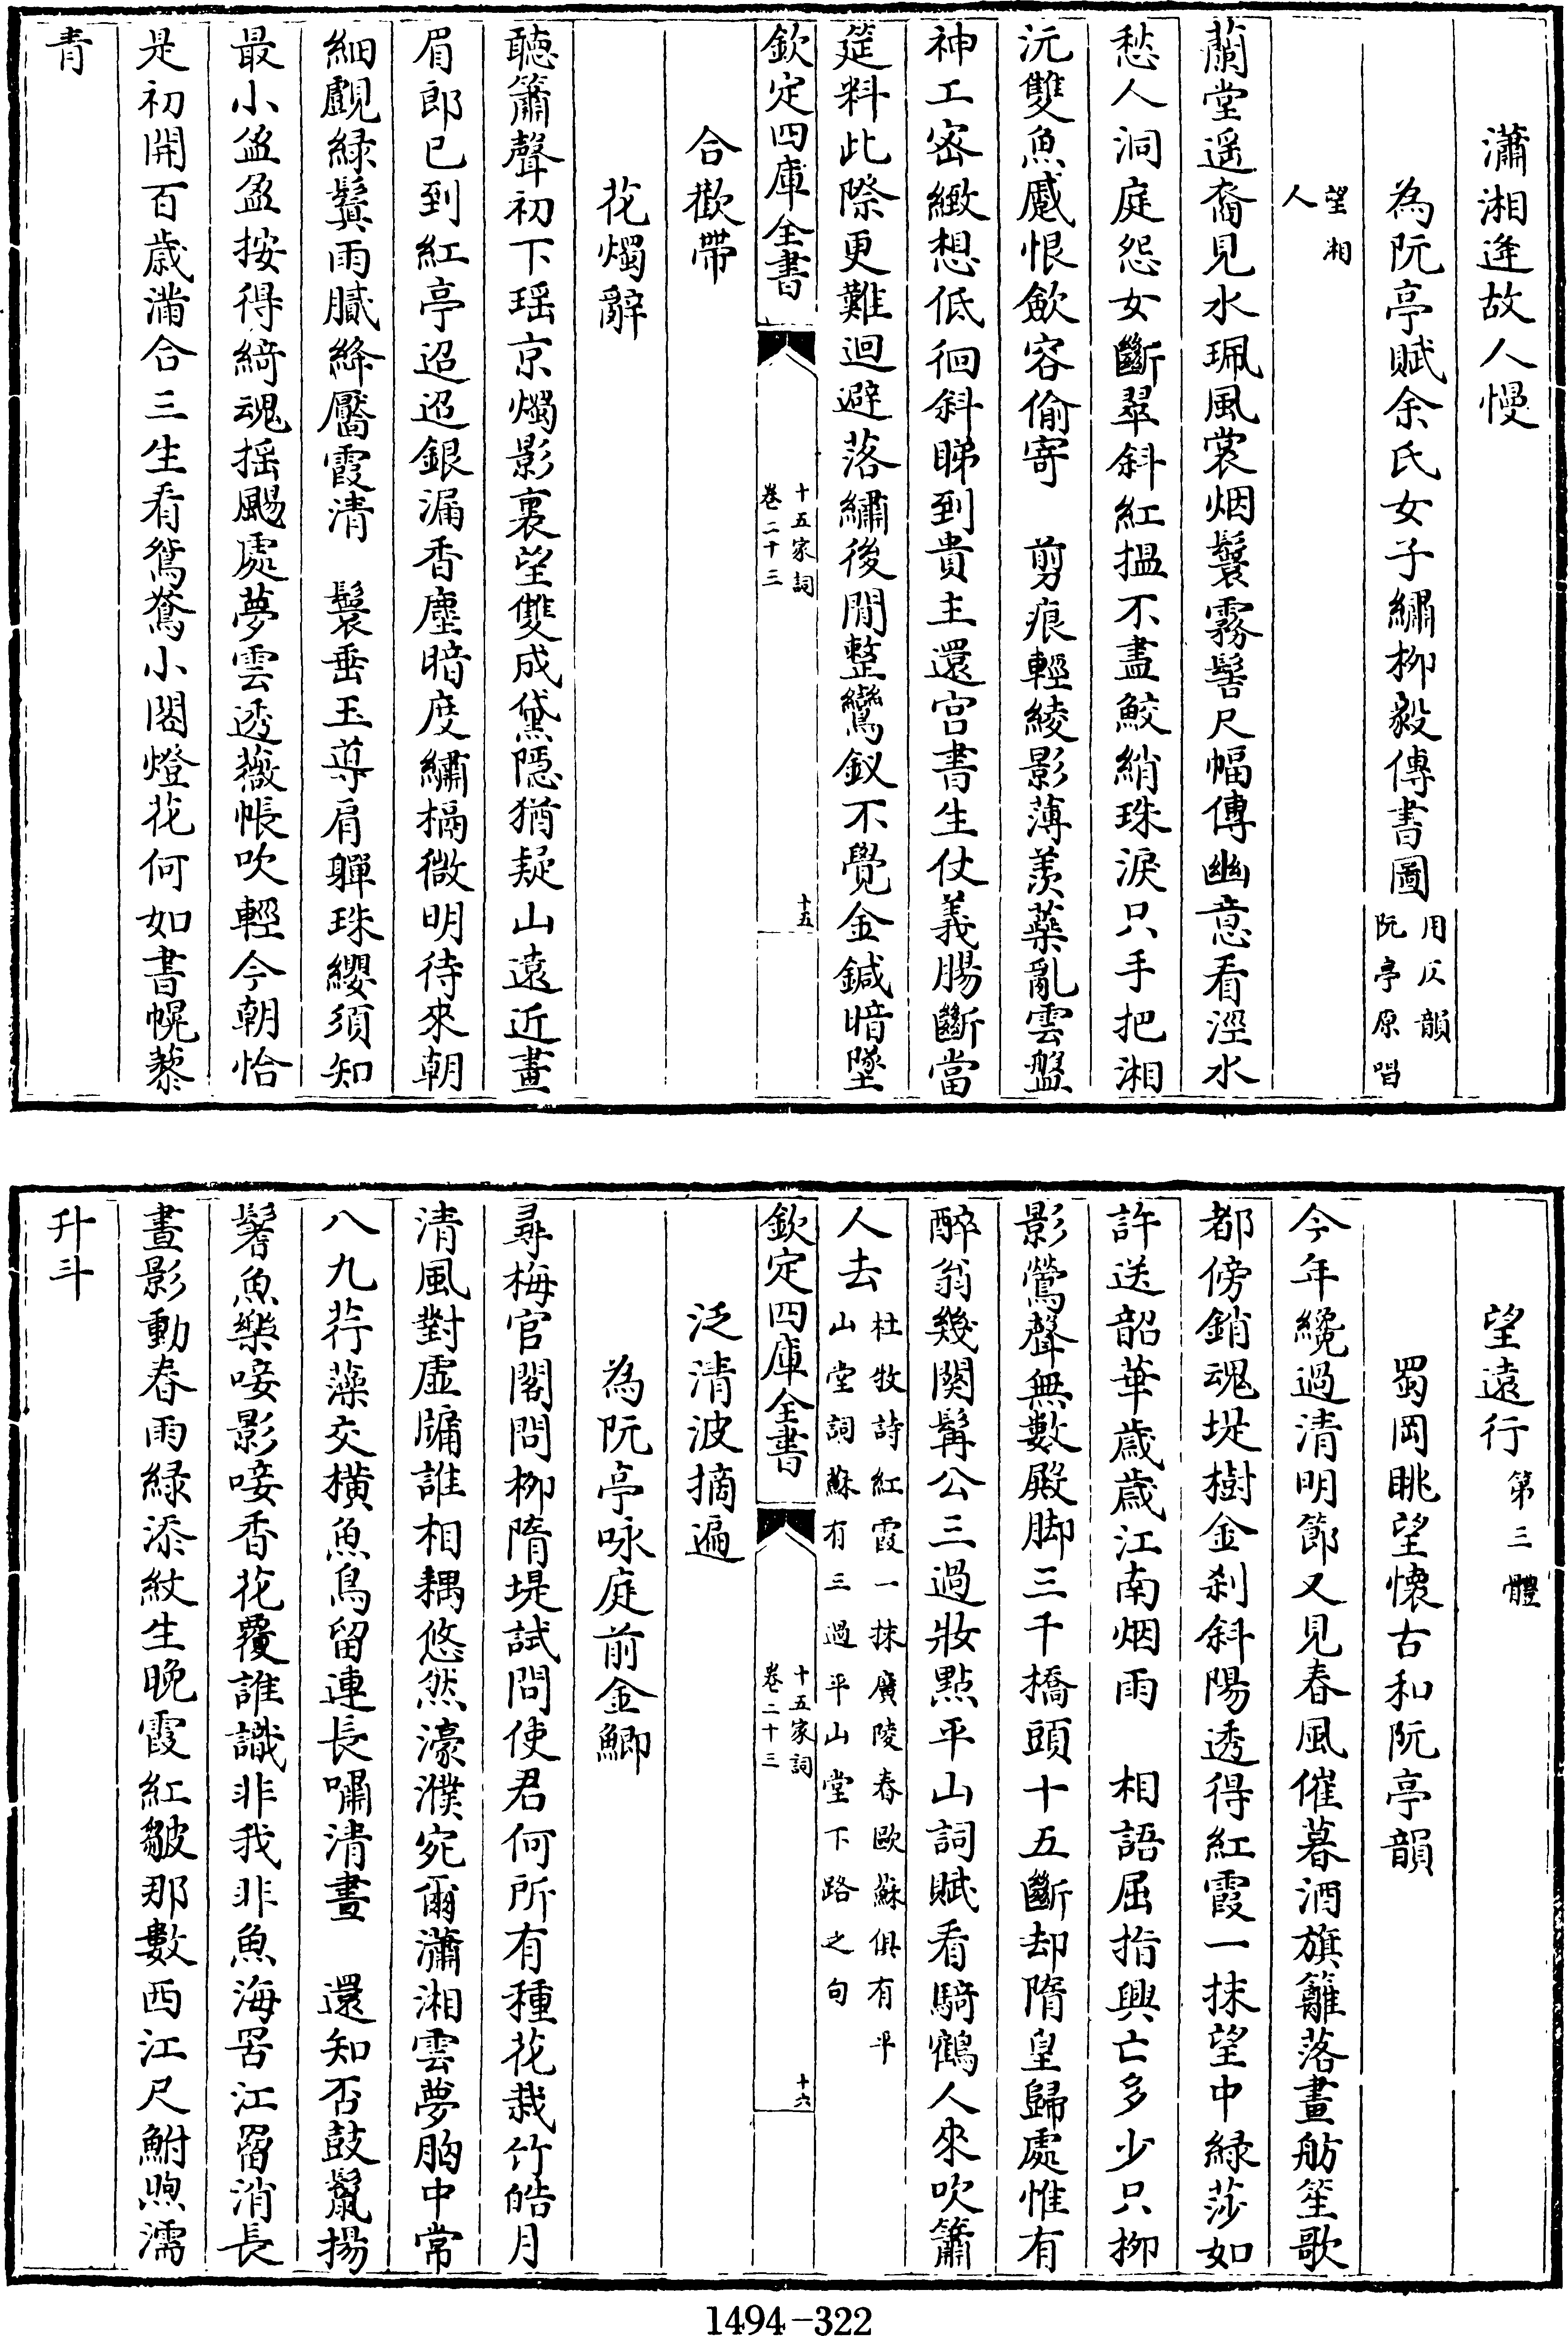 瀟湘逢故人慢
為阮亭賦余氏女子繡柳毅傳書圖用仄韻阮亭原唱
望湘人
蘭堂遥裔見水珮風裳烟鬟霧髻尺幅傳幽意看涇水
愁人洞庭怨女斷翠斜紅揾不盡鮫綃珠淚只手把湘
沅雙魚蹙恨斂容偷寄　剪痕輕綾影薄羡藥亂雲盤
神工密緻想低徊斜睇到貴主還宫書生仗義腸斷當
筵料此際更難迴避落繡後閒整鸞釵不覺金鍼暗墜
欽定四庫全書
十五家詞
卷二十三
十五
合歡帶
花燭辭
聽簫聲初下瑶京燭影裏望雙成黛隱猶疑山遠近畫
眉郎已到紅亭迢迢銀漏香塵暗度繡槅微明待來朝
細覷緑鬢雨膩絳靨霞清　鬟垂玉導肩軃珠纓須知
最小盈盈按得綺魂揺颺處夢雲透薇帳吹輕今朝恰
是初開百歳滿合三生看鴛鴦小閣燈花何如書幌藜
青
望遠行第三體
蜀岡眺望懷古和阮亭韻
今年纔過清明節又見春風催暮酒旗籬落畫舫笙歌
都傍銷魂堤樹金刹斜陽透得紅霞一抹望中緑莎如
許送韶華歲歲江南烟雨　相語屈指興亡多少只柳
影鶯聲無數殿脚三千橋頭十五斷却隋皇歸處惟有
醉翁幾闋髯公三過妝點平山詞賦看騎鶴人來吹簫
人去杜牧詩紅霞一抹廣陵春歐蘇俱有平山堂詞蘇有三過平山堂下路之句
欽定四庫全書
十五家詞
卷二十三
十六
泛清波摘遍
為阮亭咏庭前金鯽
尋梅官閣問柳隋堤試問使君何所有種花栽竹皓月
清風對虚牗誰相耦悠然濠濮宛爾瀟湘雲夢胸中常
八九荇藻交横魚鳥留連長嘯清晝　還知否鼓鬛揚
鬐魚樂唼影唼香花覆誰識非我非魚海罟江罶消長
晝影動春雨緑添紋生晚霞紅皺那數西江尺鮒煦濡
升斗
1494-322